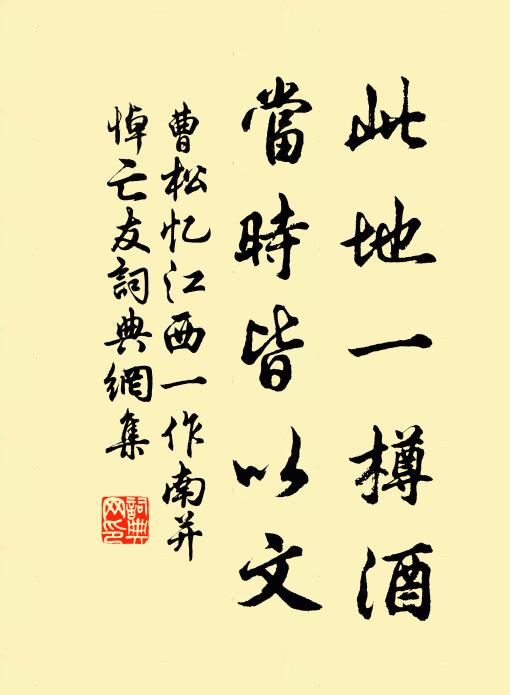 此地一樽酒
當時皆以文
曹松忆江西一作南并
悼亡友詞典網集
詞典网印